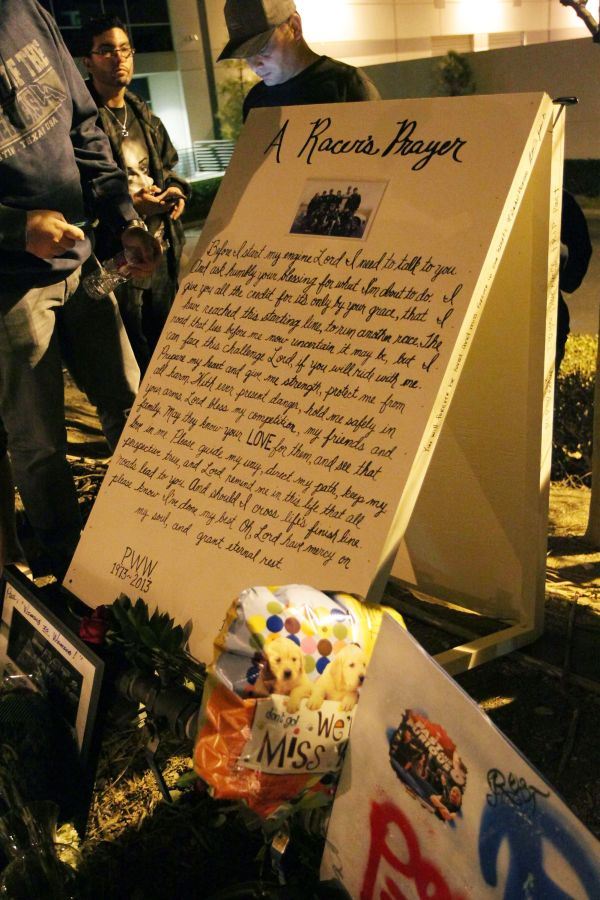 A Racer's Prayer
Before I start my engine Lord I need to talk to you
And ask humbly your blessing for what I'm about to do. I
give you all the credit for its only by your grace, that I
have reached this starting line, to run another race. The
road that lies before me now uncertain it may be, but I
can face this challenge Lord, if you will ride with me.
Prepare my heart and give me strength, protect me from
all harm. With ever present danger, hold me safely in
your arms. Lord bless my competition, my friends and
family. May they know your LOVE for them, and see that
love in me. Please guide my way, direct my path, keep my
perspective true, and Lord remind me in this life that all
roads lead to you. And should I cross life's finish line
please know I've done my best. Oh, Lord have mercy on
my soul, and grant eternal rest.
PWW
1973~2013
don't go!
We'll
Miss